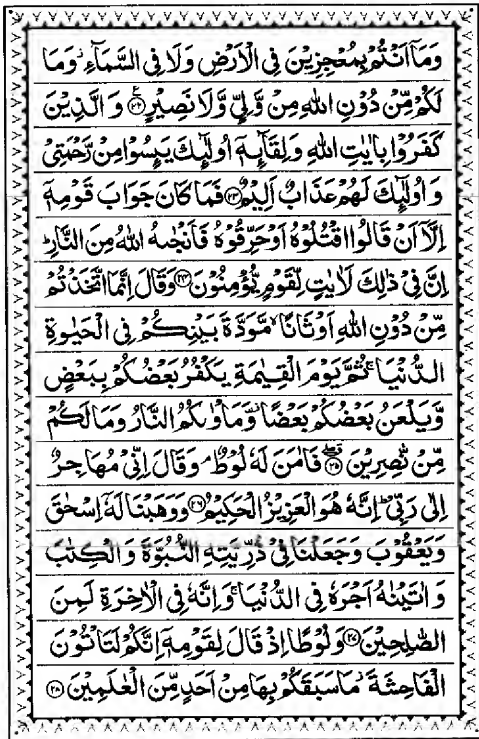 وَمَآ اَنْتُمْ بِمُعْجِزِيْنَ فِى الْاَرْضِ وَلَا فِى السَّمَآءِ ۡ وَمَا
لَكُمْ مِّنْ دُوْنِ اللّٰهِ مِنْ وَّلِيٍّ وَّلَا نَصِيْرٍ ۝۲۲ وَالَّذِيْنَ
كَفَرُوْا بِاٰيٰتِ اللّٰهِ وَلِقَآئِهٖۤ اُولٰٓئِكَ يَئِسُوْا مِنْ رَّحْمَتِيْ
وَاُولٰٓئِكَ لَهُمْ عَذَابٌ اَلِيْمٌ ۝۲۳ فَمَا كَانَ جَوَابَ قَوْمِهٖۤ
اِلَّاۤ اَنْ قَالُوا اقْتُلُوْهُ اَوْ حَرِّقُوْهُ فَاَنْجٰىهُ اللّٰهُ مِنَ النَّارِ ؕ
اِنَّ فِيْ ذٰلِكَ لَاٰيٰتٍ لِّقَوْمٍ يُّؤْمِنُوْنَ ۝۲۴ وَقَالَ اِنَّمَا اتَّخَذْتُمْ
مِّنْ دُوْنِ اللّٰهِ اَوْثَانًا ۙ مَّوَدَّةَ بَيْنِكُمْ فِى الْحَيٰوةِ
الدُّنْيَا ۚ ثُمَّ يَوْمَ الْقِيٰمَةِ يَكْفُرُ بَعْضُكُمْ بِبَعْضٍ
وَّيَلْعَنُ بَعْضُكُمْ بَعْضًا ۡ وَّمَاْوٰىكُمُ النَّارُ وَمَا لَكُمْ
مِّنْ نّٰصِرِيْنَ ۝۲۵ فَاٰمَنَ لَهٗ لُوْطٌ ۘ وَقَالَ اِنِّيْ مُهَاجِرٌ
اِلٰى رَبِّيْ ؕ اِنَّهٗ هُوَ الْعَزِيْزُ الْحَكِيْمُ ۝۲۶ وَوَهَبْنَا لَهٗۤ اِسْحٰقَ
وَيَعْقُوْبَ وَجَعَلْنَا فِيْ ذُرِّيَّتِهِ النُّبُوَّةَ وَالْكِتٰبَ
وَاٰتَيْنٰهُ اَجْرَهٗ فِى الدُّنْيَا ۚ وَاِنَّهٗ فِى الْاٰخِرَةِ لَمِنَ
الصّٰلِحِيْنَ ۝۲۷ وَلُوْطًا اِذْ قَالَ لِقَوْمِهٖۤ اِنَّكُمْ لَتَاْتُوْنَ
الْفَاحِشَةَ ۡ مَا سَبَقَكُمْ بِهَا مِنْ اَحَدٍ مِّنَ الْعٰلَمِيْنَ ۝۲۸